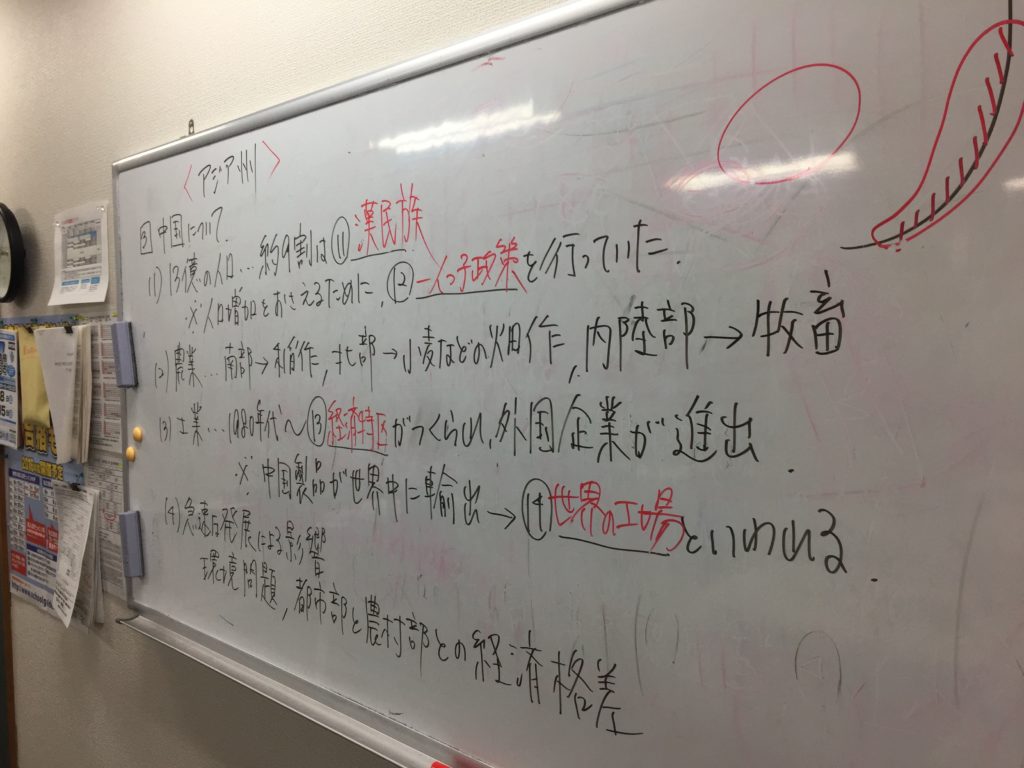 〈アジア州〉
③中国について
(1) 13億の人口…約9割は⑪漢民族
※人口増加をおさえるために、⑫一人っ子政策を行っていた.
(2) 農業…南部→稲作, 北部→小麦などの畑作, 内陸部→牧畜
(3) 工業…1980年代〜⑬経済特区がつくられ, 外国企業が進出.
※中国製品が世界中に輸出→⑭世界の工場といわれる.
(4) 急速な発展による影響
環境問題, 都市部と農村部との経済格差